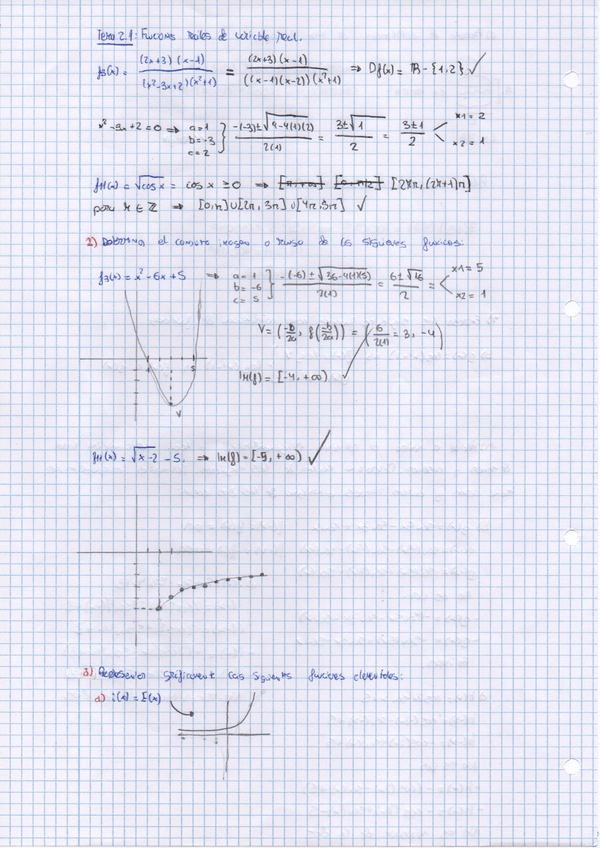 Tema 2.1: Funciones reales de variable real.
f3(x) = (2x+3)(x-1) / (x²-3x+2)(x²+1) = (2x+3)(x-1) / ((x-1)(x-2))(x²+1) ⇒ Df(x) = ℝ - {1,2} ✓
x² - 3x + 2 = 0 ⇒ a=1 b=-3 c=2 } -(-3)±√9-4(1)(2) / 2(1) = 3±√1 / 2 = 3±1 / 2 x1 = 2 x2 = 1
f11(x) = √cos x = cos x ≥ 0 ⇒ [2πn, (2x+1)π]
para x ∈ ℤ ⇒ [0,π]∪[2π, 3π] ∪[4π,3π] ✓
2) Determina el conjunto imagen o rango de las siguientes funciones:
f3(x) = x² - 6x + 5 ⇒ a = 1 b = -6 c = 5 } -(-6) ± √36-4(1)(5) / 2(1) = 6±√16 / 2 = x1 = 5 x2 = 1
V = (-b/2a, f(-b/2a)) = (6/2(1) = 3, -4)
Im(f) = [-4, +∞) ✓
1 5
V
f11(x) = √x-2 - 5 ⇒ Im(f) = [-5, +∞) ✓
3) Representar gráficamente las siguientes funciones elementales:
d) i(x) = E(x)